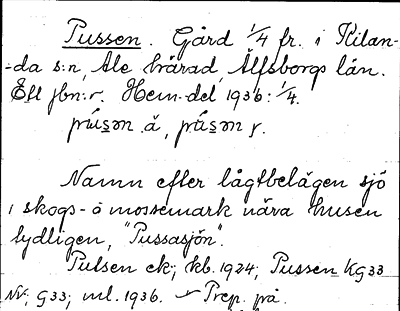 Pussen. Gård 1/4 fr. i Kilan-
-da s:n, Ale härad, Älfsborgs län.
Ett jbn:r. Hem.-del 1936: 1/4.
Namn efter lågtbelägen sjö
i skogs- o mossemark nära husen
tydligen, "Pussasjön".
Pulsen ek; kb. 1924; Pussen KG33
NV; G33; ml. 1936. Prep. på.